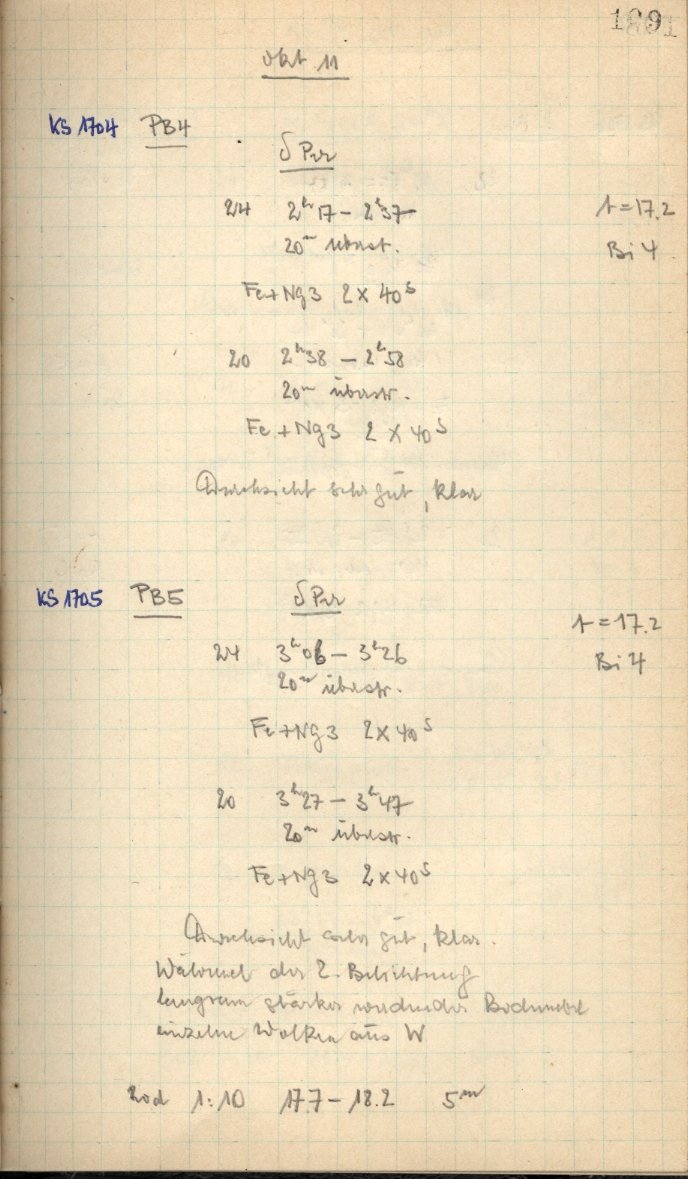 Okt 11
KS 1704 PB4
δ Per
24 2ʰ17 – 2ʰ37 t = 17.2
20ᵐ überstr. Bi 4
Fe + Ng3 2 × 40ˢ
20 2ʰ38 – 2ʰ58
20ᵐ überstr.
Fe + Ng3 2 × 40ˢ
Durchsicht sehr gut, klar
KS 1705 PB5 δ Per
t = 17.2
24 3ʰ06 – 3ʰ26 Bi 4
20ᵐ überstr.
Fe + Ng3 2 × 40ˢ
20 3ʰ27 – 3ʰ47
20ᵐ überstr.
Fe + Ng3 2 × 40ˢ
Durchsicht sehr gut, klar.
Während der 2. Belichtung
langsam stärker werdender Bodennebel
einzelne Wolken aus W
1:10 17.7 – 18.2 5ᵐ